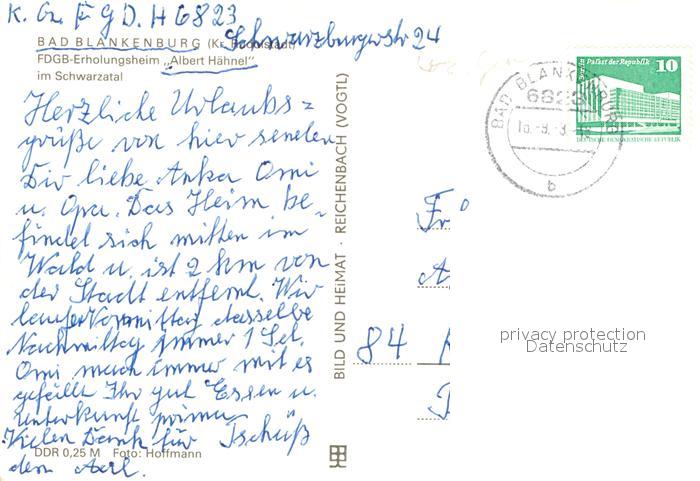 K. Gr. F G D. H 6823
Schwarzburgerstr 24
BAD BLANKENBURG (Kr. Rudolstadt)
FDGB-Erholungsheim „Albert Hähnel"
im Schwarzatal
Herzliche Urlaubs=
grüße von hier senden
Dir liebe Anka Omi
u. Opa. Das Heim be-
findet sich mitten im
Wald u. ist 2 km von
der Stadt entfernt. Wir
laufen Vormittag dasselbe
Nachmittag immer 1 Std.
Omi mach immer mit es
gefällt Ihr gut Essen u.
Unterkunft prima
Vielen Dank für Tschüß
dem
DDR 0,25 M Foto: Hoffmann
BILD UND HEIMAT · REICHENBACH (VOGTL)
Palast der Republik
10
DEUTSCHE DEMOKRATISCHE REPUBLIK
BAD BLANKENBURG
6823
b
Fr
A
84
privacy protection
Datenschutz